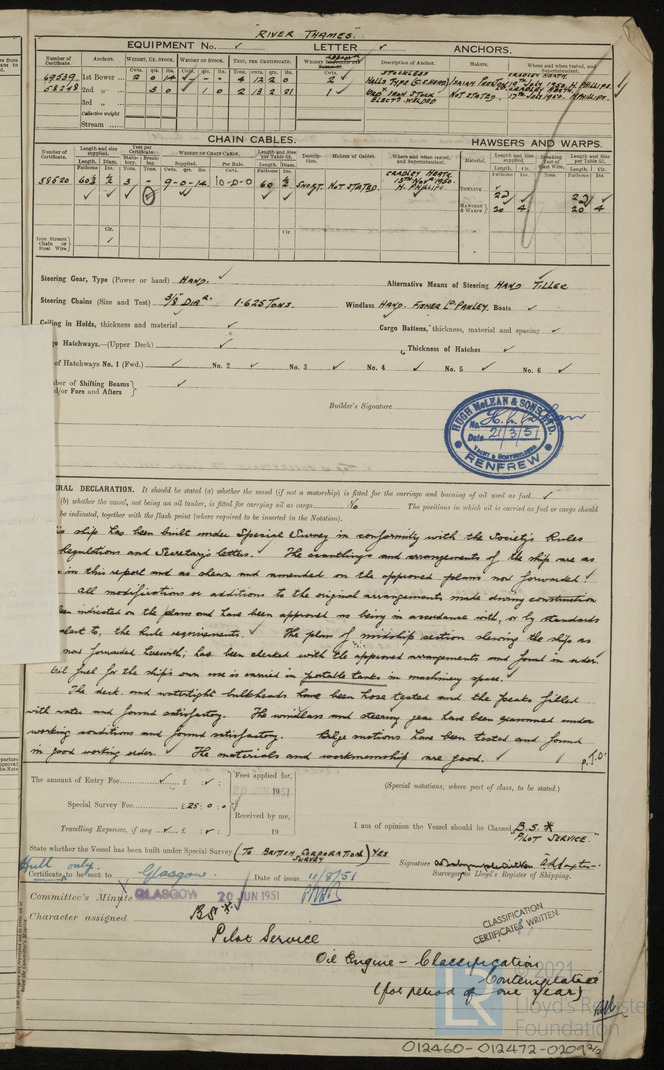 "RIVER THAMES".
EQUIPMENT No. ✓ LETTER ✓ ANCHORS.
Number of Certificate. Anchors. WEIGHT, EX. STOCK. WEIGHT OF STOCK. TEST, PER CERTIFICATE. Description of Anchor. Makers. Where and when tested, and Superintendent.
Cwts. qrs. lbs. Cwts. qrs. lbs. Tons. cwts. qrs. lbs. Cwts.
69539 1st Bower 2 0 14 4 12 2 0 2 STOCKLESS HALLS TYPE CRADLEY HEATH H. PHILLIPS.
58248 2nd „ 3 0 1 0 2 13 2 21 1 IRON STOCK ELECT. WELDED NOT STATED. CRADLEY HEATH
3rd „
Collective weight
Stream
CHAIN CABLES. HAWSERS AND WARPS.
Number of Certificate. Length and size supplied. Test per Certificate. WEIGHT OF CHAIN CABLE. Length and Size per Table 53. Description. Makers of Cables. Where and when tested, and Superintendent. Material. Length and size supplied. Breaking Test of Wire. Length and Size per Table 53.
Length. Diam. Statutory. Breaking. Supplied. Per Rule. Length. Diam. Length. Cir. Length. Cir.
58520 60½ ½ 3 - 9-0-14 10-0-0 60 ½ SHORT NOT STATED. CRADLEY HEATH. 13TH NOV. 1950. H. PHILLIPS. TOWLINE
HAWSERS & WARPS 20 4 20 4
Iron Stream Chain or Steel Wire
Steering Gear, Type (Power or hand) HAND. ✓ Alternative Means of Steering HAND TILLER
Steering Chains (Size and Test) 3/8" DIAR. 1·625 TONS. Windlass HAND. FISHER LD PAISLEY. Boats ✓
Ceiling in Holds, thickness and material ✓ Cargo Battens, thickness, material and spacing ✓
Hatchways.—(Upper Deck) ✓ Thickness of Hatches ✓
of Hatchways No. 1 (Fwd.) ✓ No. 2 ✓ No. 3 ✓ No. 4 ✓ No. 5 ✓ No. 6 ✓
ber of Shifting Beams
d/or Fore and Afters ✓
Builder's Signature
HUGH McLEAN & SONS LTD.
No.
Date 21/3/51
YACHT & BOATBUILDERS
RENFREW
RAL DECLARATION. It should be stated (a) whether the vessel (if not a motorship) is fitted for the carriage and burning of oil used as fuel ✓
(b) whether the vessel, not being an oil tanker, is fitted for carrying oil as cargo No The positions in which oil is carried as fuel or cargo should
be indicated, together with the flash point (where required to be inserted in the Notation).
is ship has been built under Special Survey in conformity with the Society's Rules
Regulations and Secretary's letters. ✓ The scantlings and arrangements of the ship are as
in this report and as shewn and amended on the approved plans now forwarded. ✓
all modifications or additions to the original arrangements made during construction
been indicated on the plans and have been approved as being in accordance with, or by standards
to, the Rule requirements. ✓ The plan of midship section shewing the ship as
now forwarded herewith, has been checked with the approved arrangements and found in order. ✓
Oil fuel for the ship's own use is carried in portable tanks in machinery space. ✓
The deck and watertight bulkheads have been hose tested and the peaks filled
with water and found satisfactory. The windlass and steering gear have been examined under
working conditions and found satisfactory. Bilge suctions have been tested and found
in good working order. ✓ The materials and workmanship are good. ✓ P.T.O.
The amount of Entry Fee ✓ £ ✓ : Fees applied for,
20 JUN 1951 (Special notations, where part of class, to be stated.)
Special Survey Fee £25 : 0 : Received by me,
Travelling Expenses, if any ✓ £ ✓ : 19 I am of opinion the Vessel should be Classed B.S.*
"PILOT SERVICE."
State whether the Vessel has been built under Special Survey (TO BRITISH CORPORATION SURVEY) YES
Signature
Hull only
Certificate to be sent to Glasgow. Date of issue 11/8/51 Surveyor to Lloyd's Register of Shipping.
Committee's Minute GLASGOW 20 JUN 1951
Character assigned BS*
CLASSIFICATION
CERTIFICATES WRITTEN
Pilot Service
Oil Engine - Classification
Contemplated
(for period of one year)
© 2021
LR
Lloyd's Register
Foundation
012460-012472-0209 2/2